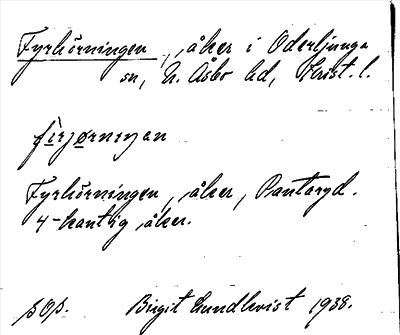 Fyrhörningen, åker i Oderljunga
sn, N. Åsbo hd, Krist. l.
Fyrhörningen, åker, Pantaryd.
4-kantig åker.
Birgit Lundkvist 1938.